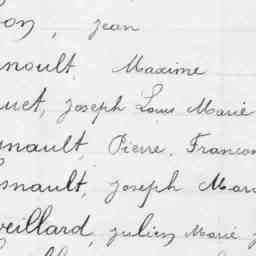 on, jean
noult, Maxime
uet, Joseph Louis Marie
nault, Pierre, Francon
snault, joseph Mar
veillard, julien Marie j